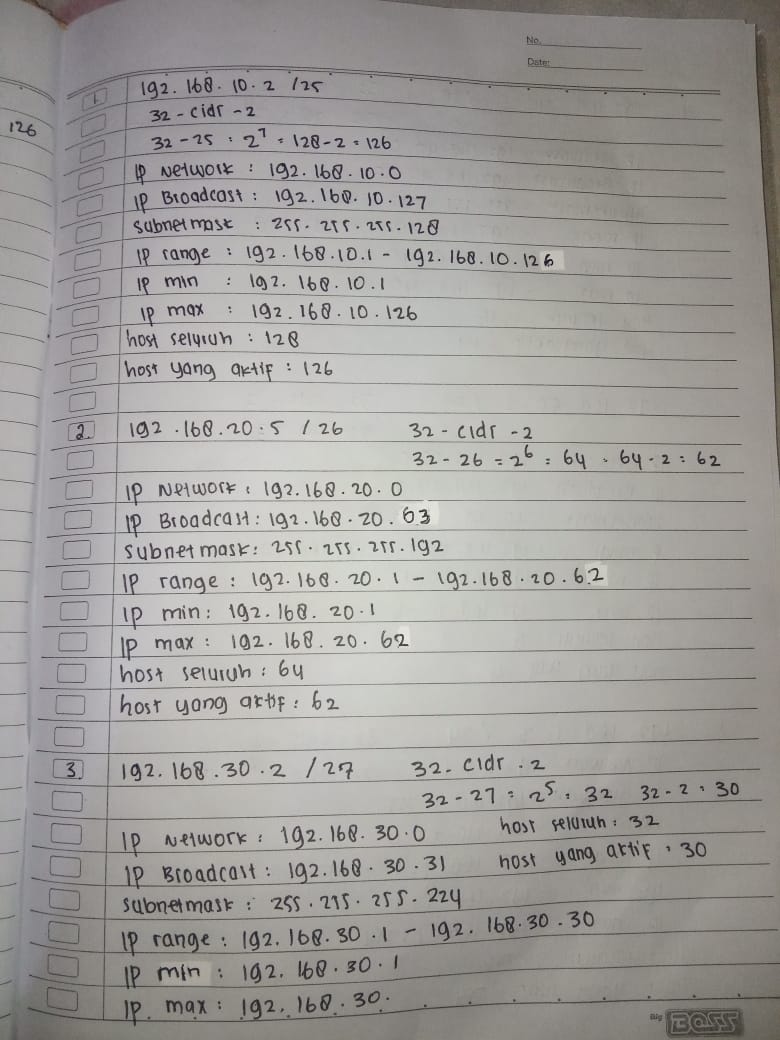 No.
Date:
126
1. 192.168.10.2 /25
32 - cidr - 2
32 - 25 : 2⁷ = 128 - 2 = 126
IP Network : 192.168.10.0
IP Broadcast : 192.168.10.127
Subnetmask : 255.255.255.128
IP range : 192.168.10.1 - 192.168.10.126
IP min : 192.168.10.1
IP max : 192.168.10.126
host seluruh : 128
host yang aktif : 126
2. 192.168.20.5 /26 32 - cidr - 2
32 - 26 = 2⁶ = 64 . 64 - 2 = 62
IP Network : 192.168.20.0
IP Broadcast : 192.168.20.63
Subnetmask : 255.255.255.192
IP range : 192.168.20.1 - 192.168.20.62
IP min : 192.168.20.1
IP max : 192.168.20.62
host seluruh : 64
host yang aktif : 62
3. 192.168.30.2 /27 32 - cidr - 2
32 - 27 = 2⁵ = 32 32 - 2 = 30
IP Network : 192.168.30.0 host seluruh : 32
IP Broadcast : 192.168.30.31 host yang aktif : 30
Subnetmask : 255.255.255.224
IP range : 192.168.30.1 - 192.168.30.30
IP min : 192.168.30.1
IP. max : 192.168.30.
Big BOSS